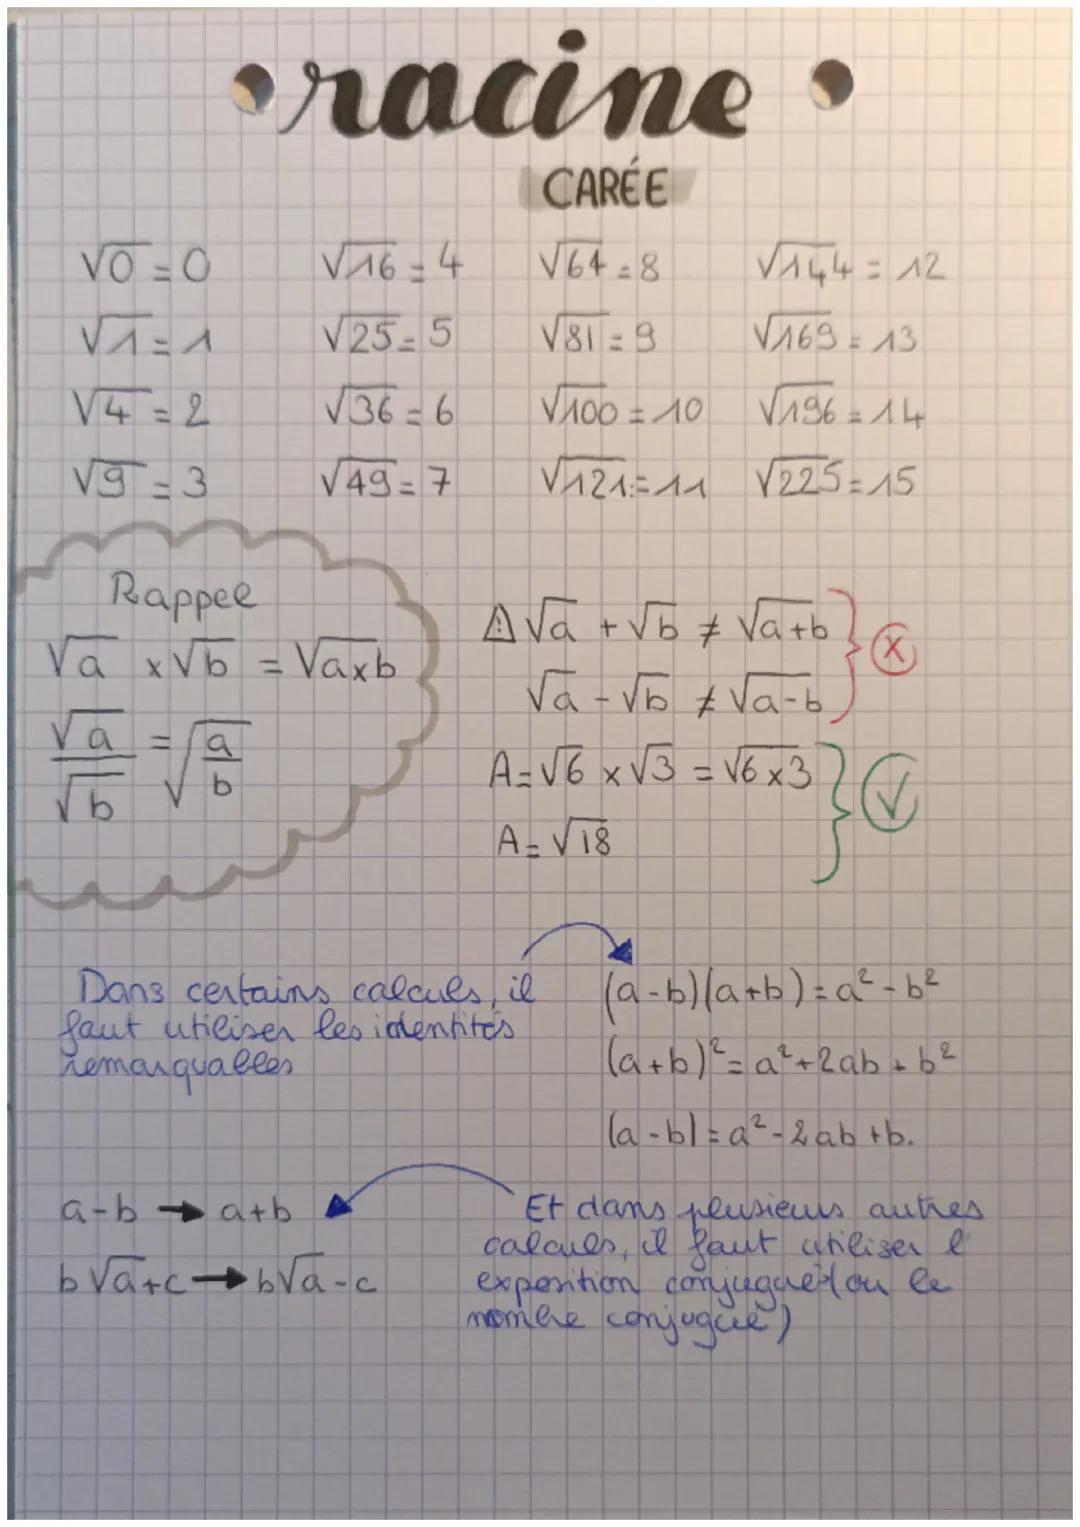 racine
CARÉE
√0 = 0 √16 = 4 √64 = 8 √144 = 12
√1 = 1 √25 = 5 √81 = 9 √169 = 13
√4 = 2 √36 = 6 √100 = 10 √196 = 14
√9 = 3 √49 = 7 √121 = 11 √225 = 15
Rappel
√a × √b = √a×b
√a/√b = √(a/b)
⚠ √a + √b ≠ √a+b
√a - √b ≠ √a-b
A = √6 × √3 = √6×3
A = √18
Dans certains calculs, il
faut utiliser les identités
remarquables
(a-b)(a+b) = a² - b²
(a+b)² = a² + 2ab + b²
(a-b) = a² - 2ab + b.
a-b → a+b
b√a+c → b√a-c
Et dans plusieurs autres
calculs, il faut utiliser l'
exposition conjugué (ou le
nombre conjugué)